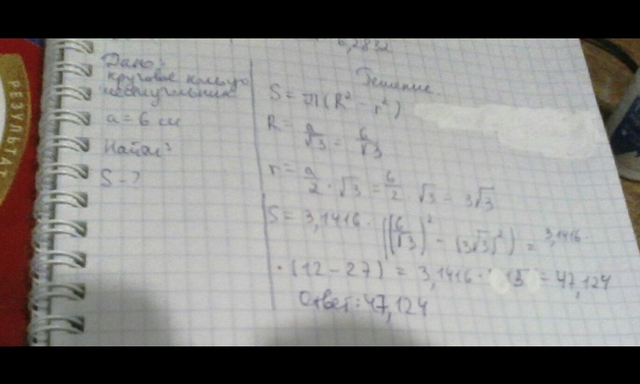 6,2832
РЕЗУЛЬТАТ
Дано:
круговое кольцо
шестиугольник
a = 6 см
Найти:
S - ?
Решение
S = π(R² - r²)
R = a/√3 = 6/√3
r = a/2 · √3 = 6/2 √3 - 3√3
S = 3,1416 · ((6/√3)² - (3√3)²) = 3,1416 ·
· (12 - 27) = 3,1416 · 15 = 47,124
Ответ: 47,124